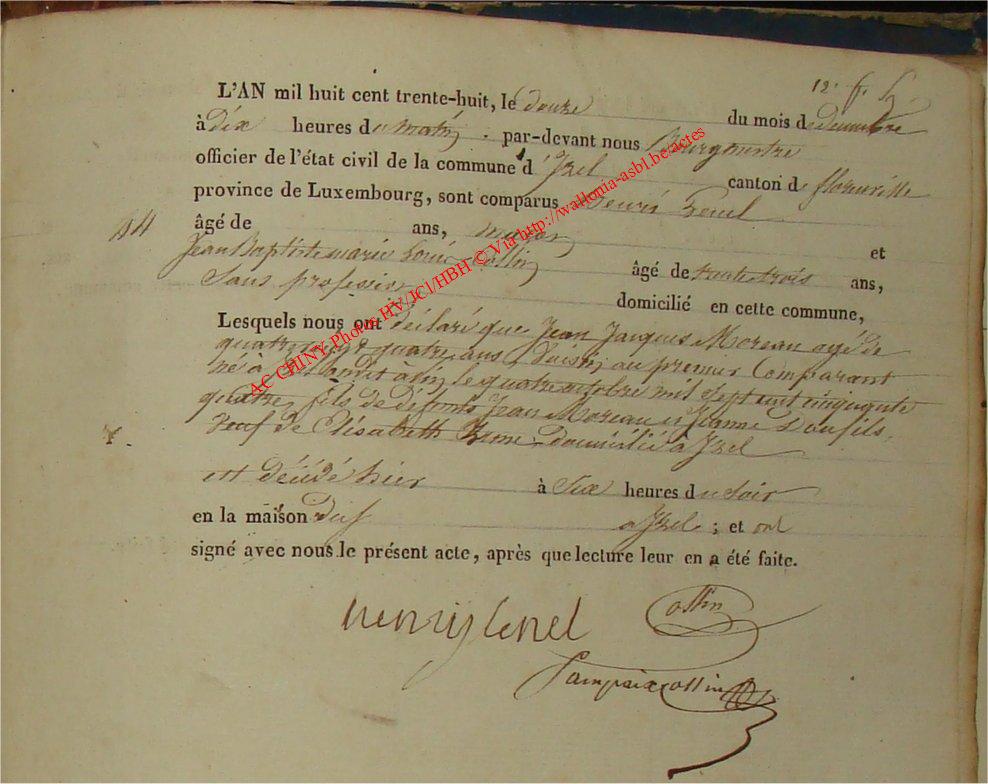 12. 
L'AN mil huit cent trente-huit, le douze du mois de decembre
à dix heures du matin . par-devant nous Bourgmestre
officier de l'état civil de la commune d'Izel canton de florenville
province de Luxembourg, sont comparus henri
44
âgé de ans, majeur et
Jean Baptiste marie Louis Collin âgé de trente trois ans,
Sans profession domicilié en cette commune,
Lesquels nous ont déclaré que Jean Jacques Moreau agé de
quatre vingt quatre ans cousin au premier Comparant
né à le quatre octobre mil sept cent cinquante
quatre, fils de défunts Jean Moreau et Jeanne
veuf de Elisabeth domicilié à Izel
est décédé hier à Six heures du soir
en la maison à Izel ; et ont
signé avec nous le présent acte, après que lecture leur en a été faite.
Collin
Collin
AC CHINY Photos HV/JCl/HBH © Via http://wallonia-asbl.be/actes